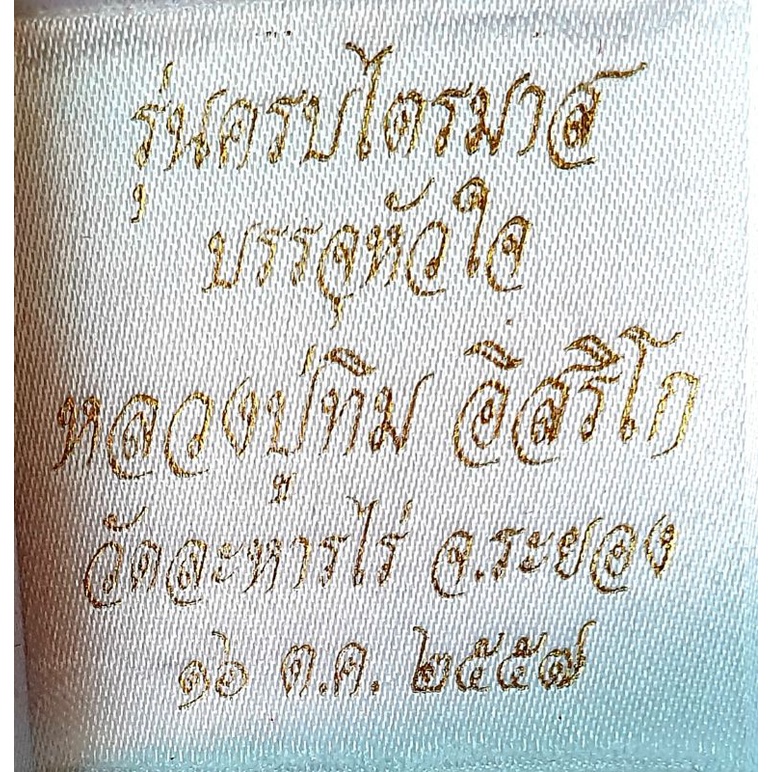 รุ่นครบไตรมาส
บรรจุหัวใจ
หลวงปู่ทิม อิสริโก
วัดละหารไร่ จ.ระยอง
๑๖ ต.ค. ๒๕๕๗